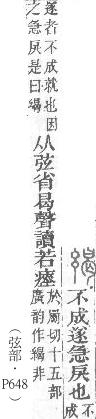 不成遂急戾也
不成
遂者不成就也因
之急戾是曰
从弦省曷聲讀若瘞
於罽切十五部
廣韵作 非
（弦部·P648）